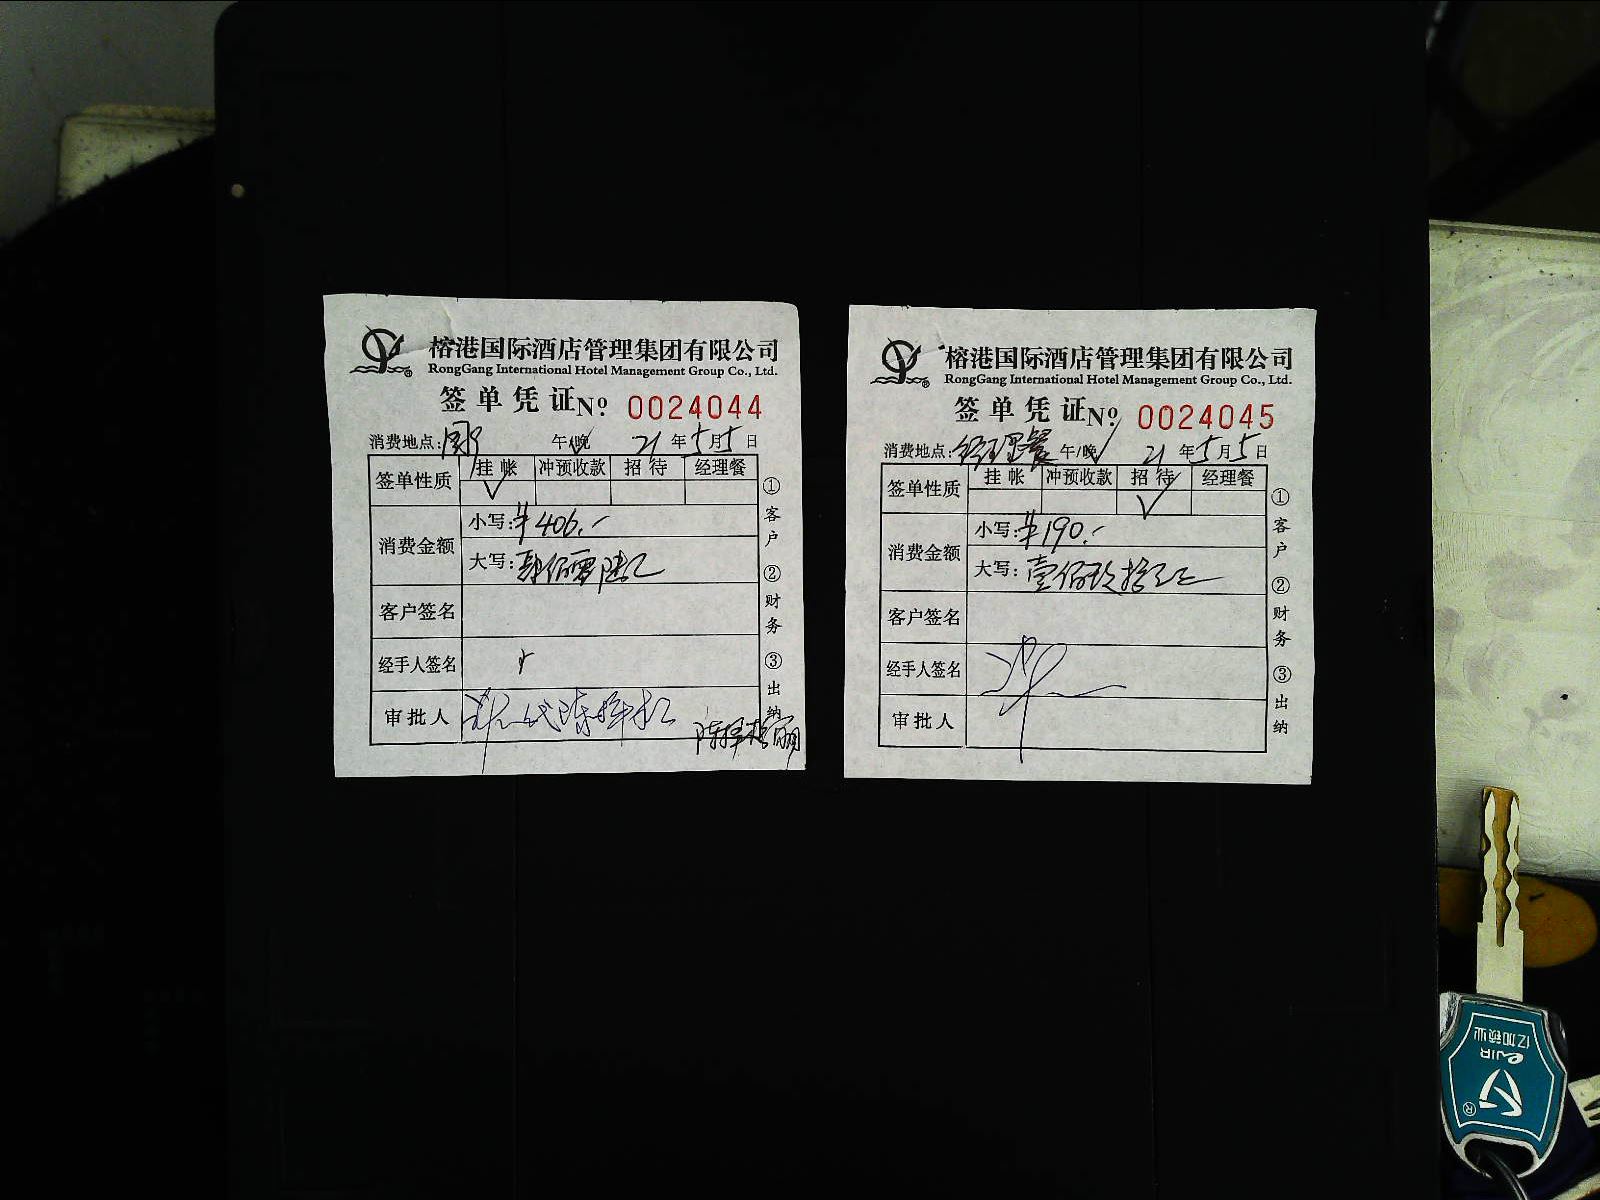 榕港国际酒店管理集团有限公司
RongGang International Hotel Management Group Co., Ltd.
签单凭证 Nº 0024044
消费地点: 午/晚 21年5月5日
签单性质 挂帐 冲预收款 招待 经理餐
消费金额
小写:¥406.-
大写:肆佰零陆元
客户签名
经手人签名
审批人
①客户 ②财务 ③出纳
榕港国际酒店管理集团有限公司
RongGang International Hotel Management Group Co., Ltd.
签单凭证 Nº 0024045
消费地点:经理餐 午/晚 21年5月5日
签单性质 挂帐 冲预收款 招待 经理餐
消费金额
小写:¥190.-
大写:壹佰玖拾元正
客户签名
经手人签名
审批人
①客户 ②财务 ③出纳
亿加锁业
eJIR
®